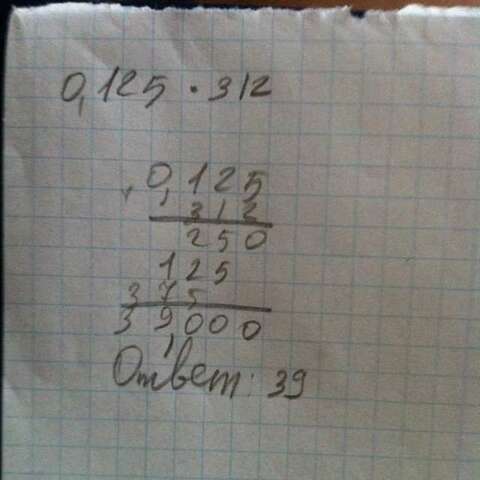 0,125 · 312
0,125
312
250
125
375
39,000
Ответ: 39